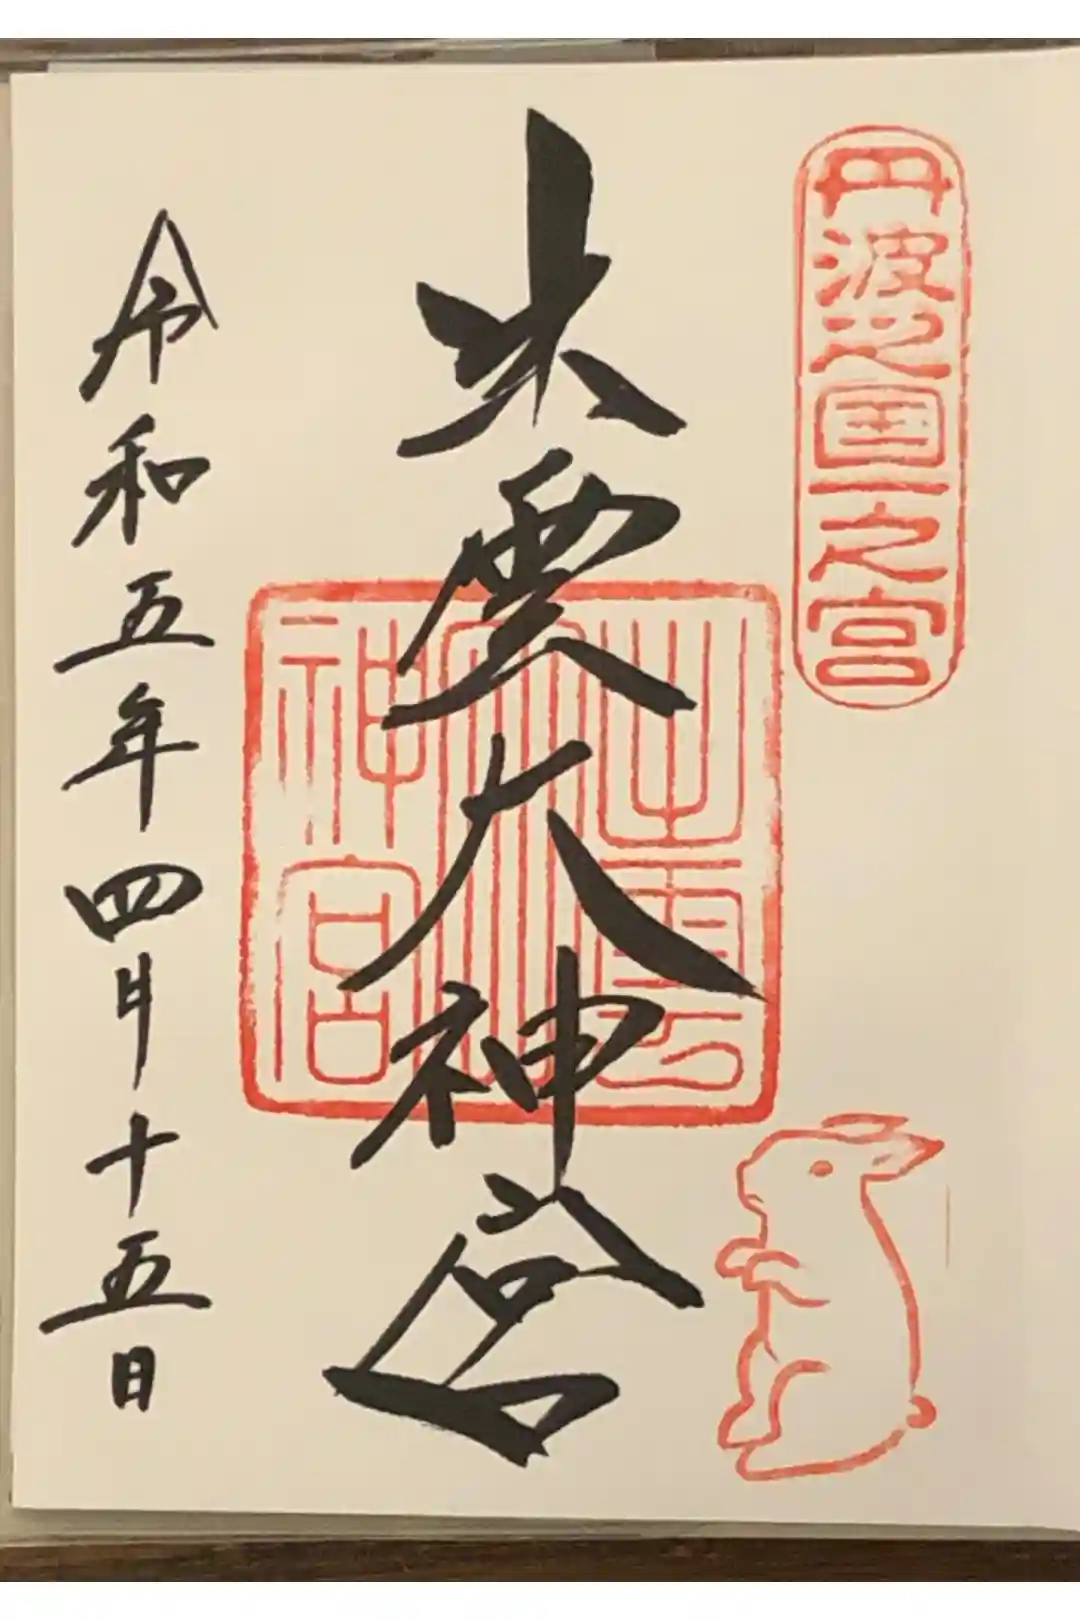 丹波之国一之宮
出雲大神宮
出雲大神宮
令和五年四月十五日